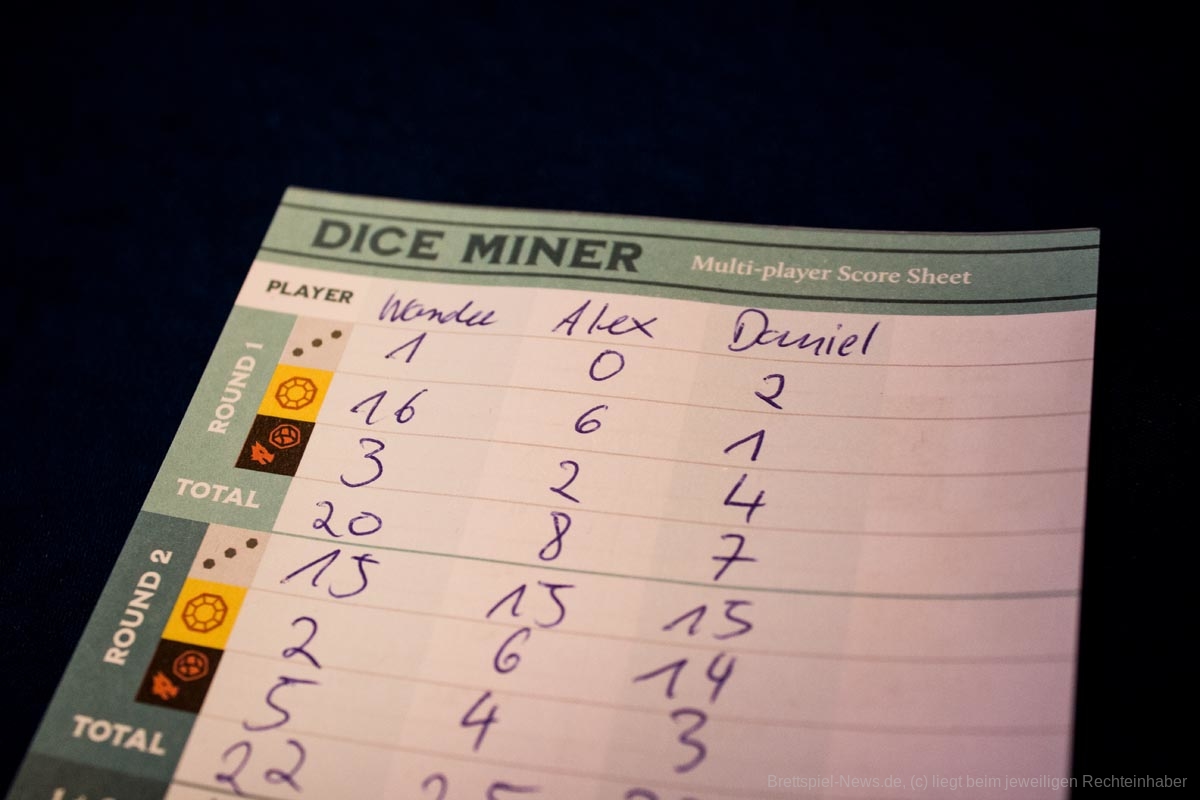 DICE MINER Multi-player Score Sheet
PLAYER Wandee Alex Daniel
ROUND 1
1 0 2
16 6 1
3 2 4
TOTAL 20 8 7
ROUND 2
15 15 15
2 6 14
5 4 3
TOTAL 22 25
Brettspiel-News.de, (c) liegt beim jeweiligen Rechteinhaber